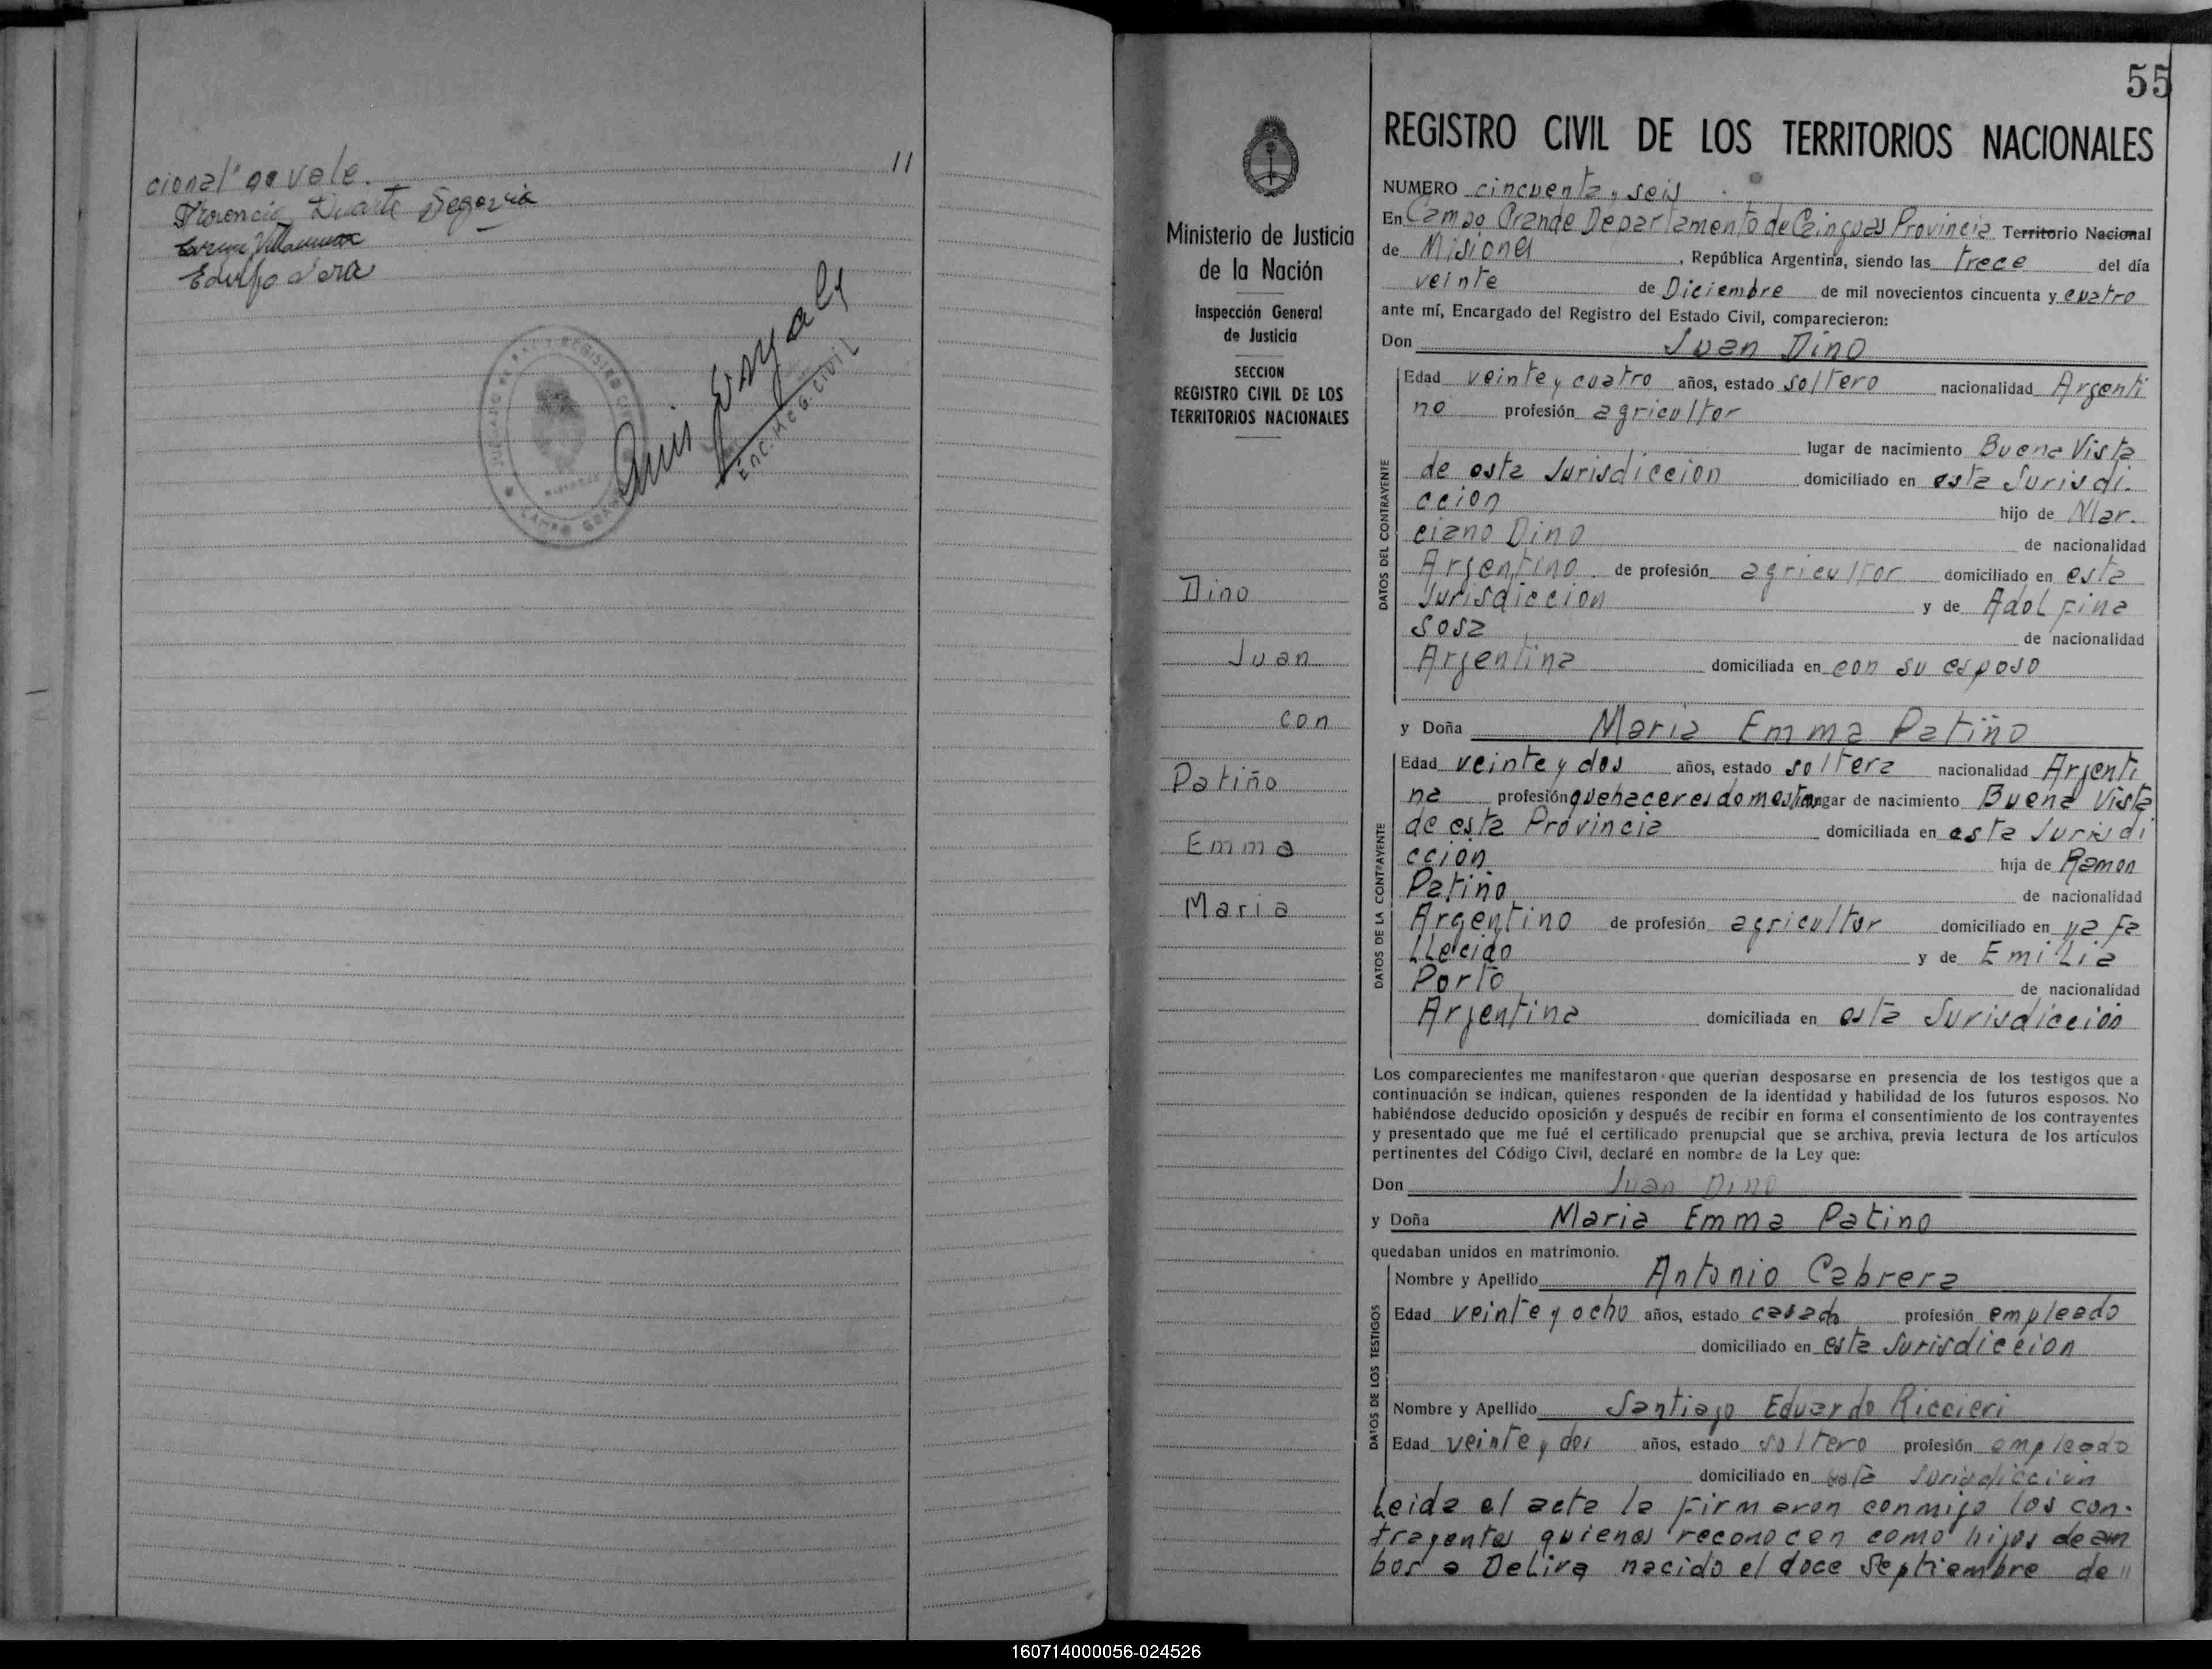 cional" no vale. 11
Duarte Segovia
55
REGISTRO CIVIL DE LOS TERRITORIOS NACIONALES
Ministerio de Justicia
de la Nación
Inspección General
de Justicia
SECCION
REGISTRO CIVIL DE LOS
TERRITORIOS NACIONALES
Dino
Juan
con
Patiño
Emma
Maria
NUMERO cincuenta y seis
En Campo Grande Departamento de Cainguas Provincia Territorio Nacional
de Misiones, República Argentina, siendo las trece del día
veinte de Diciembre de mil novecientos cincuenta y cuatro
ante mí, Encargado del Registro del Estado Civil, comparecieron:
Don Juan Dino
DATOS DEL CONTRAYENTE
Edad veinte y cuatro años, estado soltero nacionalidad Argenti
no profesión agricultor
lugar de nacimiento Buena Vista
de esta Jurisdiccion domiciliado en esta Jurisdi-
ccion hijo de Mar-
ciano Dino de nacionalidad
Argentino de profesión agricultor domiciliado en esta
Jurisdiccion y de Adolfina
Sosa de nacionalidad
Argentina domiciliada en con su esposo
y Doña Maria Emma Patiño
DATOS DE LA CONTRAYENTE
Edad veinte y dos años, estado soltera nacionalidad Argenti
na profesión quehaceres domest lugar de nacimiento Buena Vista
de esta Provincia domiciliada en esta Jurisdi
cción hija de Ramon
Patiño de nacionalidad
Argentino de profesión agricultor domiciliado en ya fa
llecido y de Emilia
Porto de nacionalidad
Argentina domiciliada en esta Jurisdiccion
Los comparecientes me manifestaron que querían desposarse en presencia de los testigos que a
continuación se indican, quienes responden de la identidad y habilidad de los futuros esposos. No
habiéndose deducido oposición y después de recibir en forma el consentimiento de los contrayentes
y presentado que me fué el certificado prenupcial que se archiva, previa lectura de los artículos
pertinentes del Código Civil, declaré en nombre de la Ley que:
Don Juan Dino
y Doña Maria Emma Patino
quedaban unidos en matrimonio.
DATOS DE LOS TESTIGOS
Nombre y Apellido Antonio Cabrera
Edad veinte y ocho años, estado casado profesión empleado
domiciliado en esta Jurisdiccion
Nombre y Apellido Santiago Eduardo Riccieri
Edad veinte y dos años, estado soltero profesión empleado
domiciliado en esta Jurisdiccion
Leida el acta la firmaron conmigo los con-
trayentes quienes reconocen como hijos de am
bos a Delira nacido el doce Septiembre de "
160714000056-024526